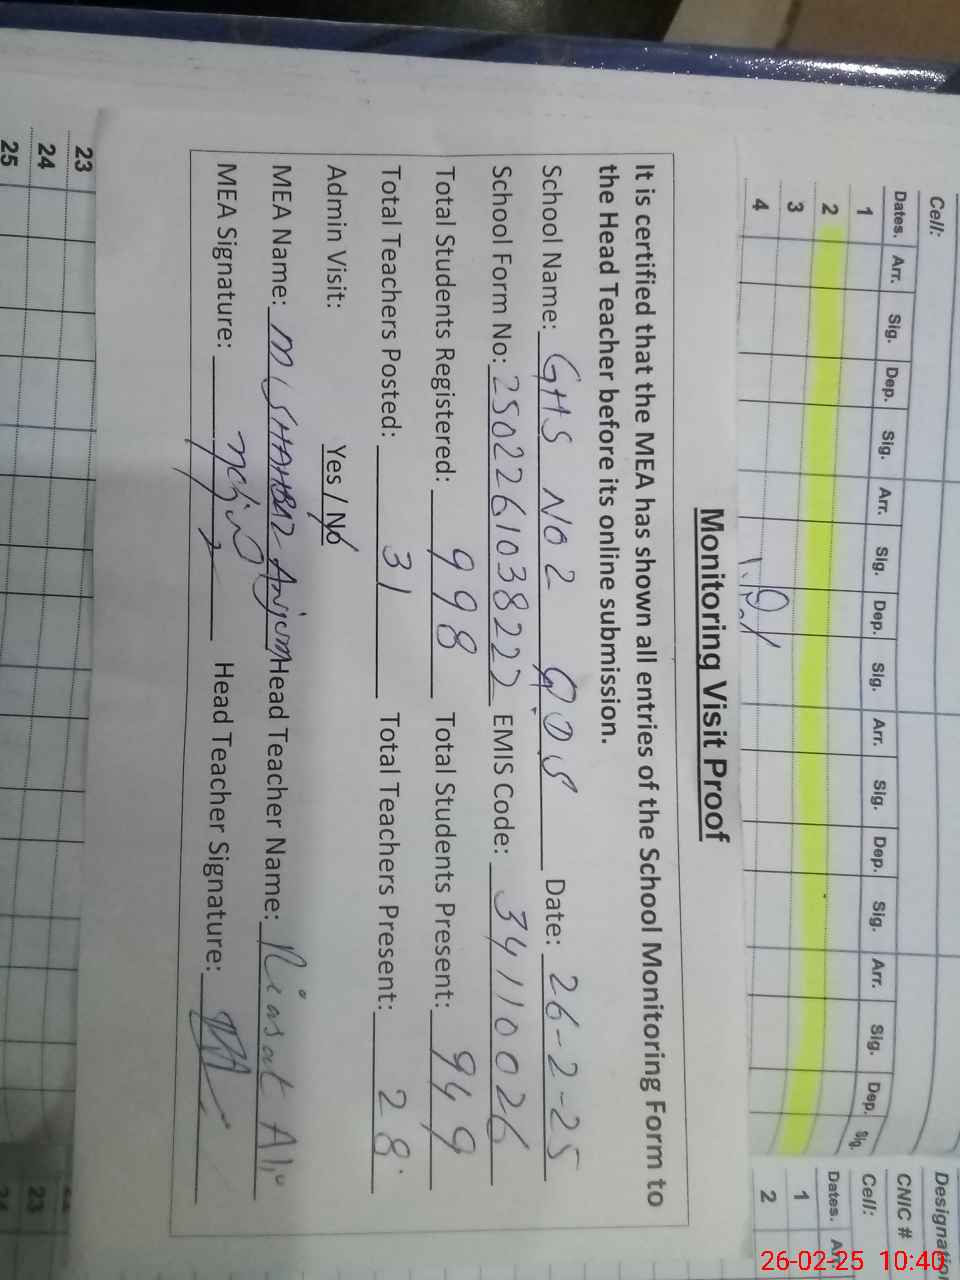 Cell:
Dates. Arr. Sig. Dep. Sig. Arr. Sig. Dep. Sig. Arr. Sig. Dep. Sig. Arr. Sig. Dep. Sig.
1
2
3
4
Designation
CNIC #
Cell:
Dates. Arr
1
2
Monitoring Visit Proof
It is certified that the MEA has shown all entries of the School Monitoring Form to
the Head Teacher before its online submission.
School Name: GHS NO 2 QDS Date: 26-2-25
School Form No: 2502261038222 EMIS Code: 34110026
Total Students Registered: 998 Total Students Present: 949
Total Teachers Posted: 31 Total Teachers Present: 28
Admin Visit: Yes / No
MEA Name: M SHAHBAZ Anjum Head Teacher Name: Riasat Ali
MEA Signature: Head Teacher Signature:
23
24
25
23
24
26-02-25 10:40